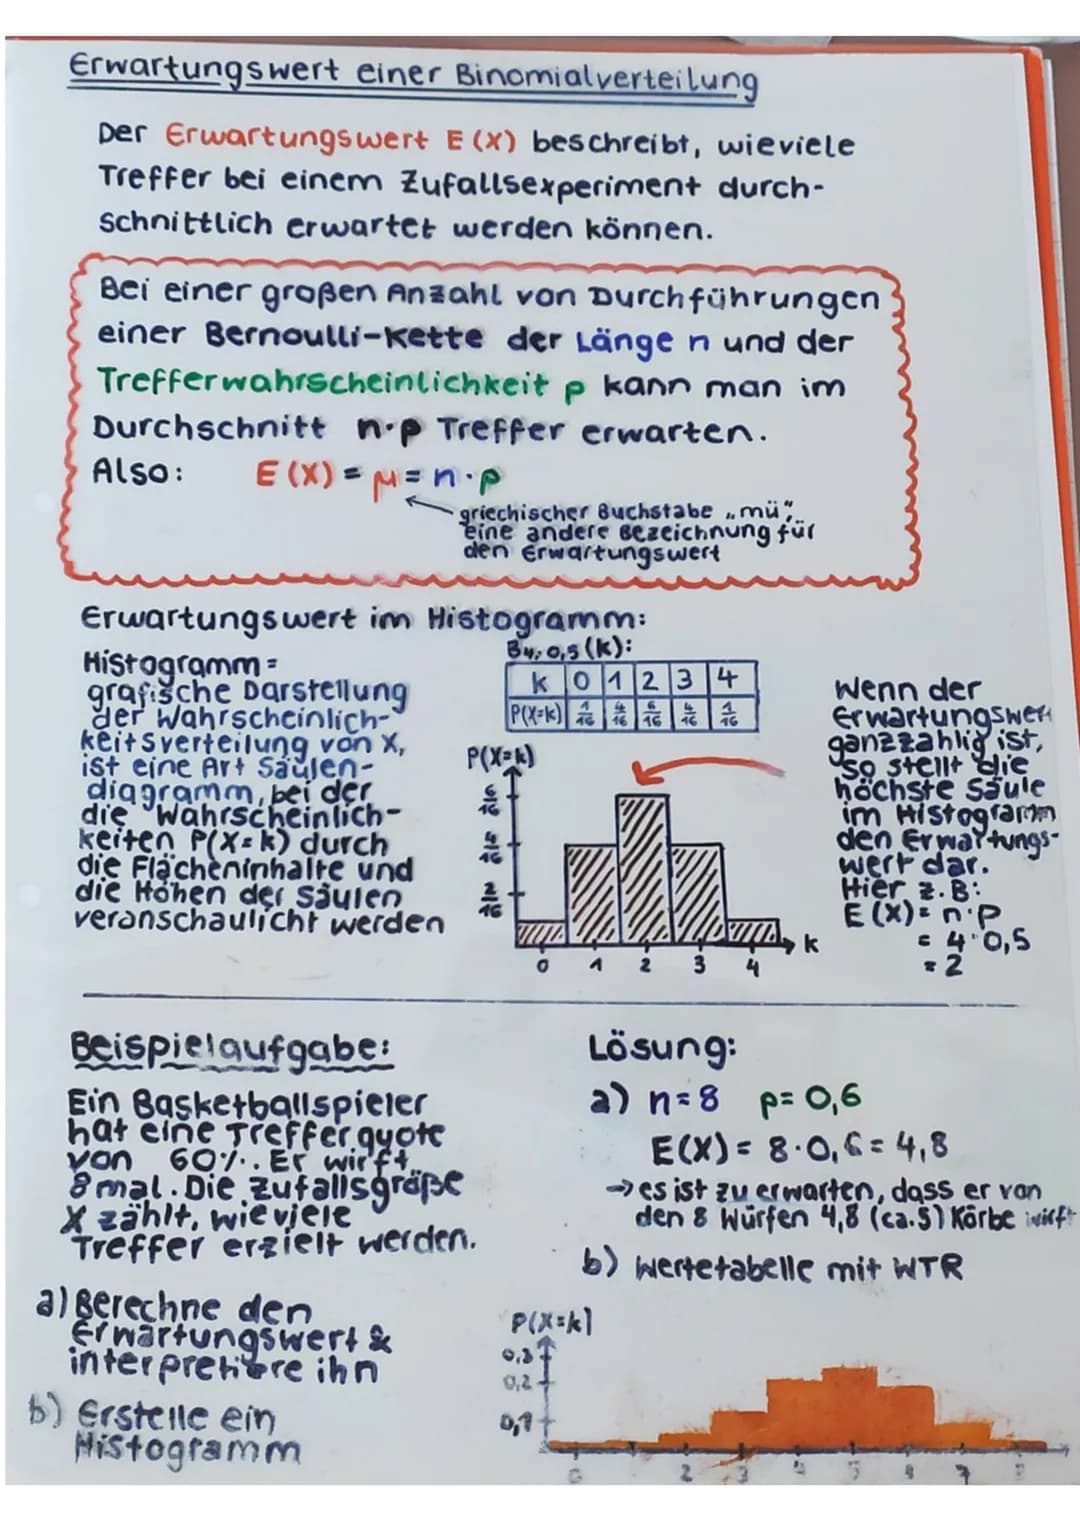 Erwartungswert einer Binomialverteilung
Der Erwartungswert E (X) beschreibt, wieviele
Treffer bei einem Zufallsexperiment durch-
schnittlich erwartet werden können.
Bei einer großen Anzahl von Durchführungen
einer Bernoulli-Kette der Länge n und der
Trefferwahrscheinlichkeit p kann man im
Durchschnitt n·p Treffer erwarten.
Also: E (X) = μ = n·p
griechischer Buchstabe „mü“,
eine andere Bezeichnung für
den Erwartungswert
Erwartungswert im Histogramm:
Histogramm =
grafische Darstellung
der Wahrscheinlich-
keitsverteilung von X,
ist eine Art Säulen-
diagramm, bei der
die Wahrscheinlich-
keiten P(X=k) durch
die Flächeninhalte und
die Höhen der Säulen
veranschaulicht werden
B4; 0,5 (k):
k 0 1 2 3 4
P(X=k) 1/16 4/16 6/16 4/16 1/16
P(X=k)
6/16
4/16
2/16
0 1 2 3 4
k
Wenn der
Erwartungswert
ganzzahlig ist,
so stellt die
höchste Säule
im Histogramm
den Erwartungs-
wert dar.
Hier z.B:
E (X) = n·p
= 4·0,5
= 2
Beispielaufgabe:
Ein Basketballspieler
hat eine Trefferquote
von 60%. Er wirft
8mal. Die Zufallsgröße
X zählt, wieviele
Treffer erzielt werden.
a) Berechne den
Erwartungswert &
interpretiere ihn
b) Erstelle ein
Histogramm
Lösung:
a) n=8 p=0,6
E(X) = 8·0,6 = 4,8
→ es ist zu erwarten, dass er von
den 8 Würfen 4,8 (ca.5) Körbe wirft
b) Wertetabelle mit WTR
P(X=k)
0,3
0,2
0,1
0 2 3 4 5 6 7 8